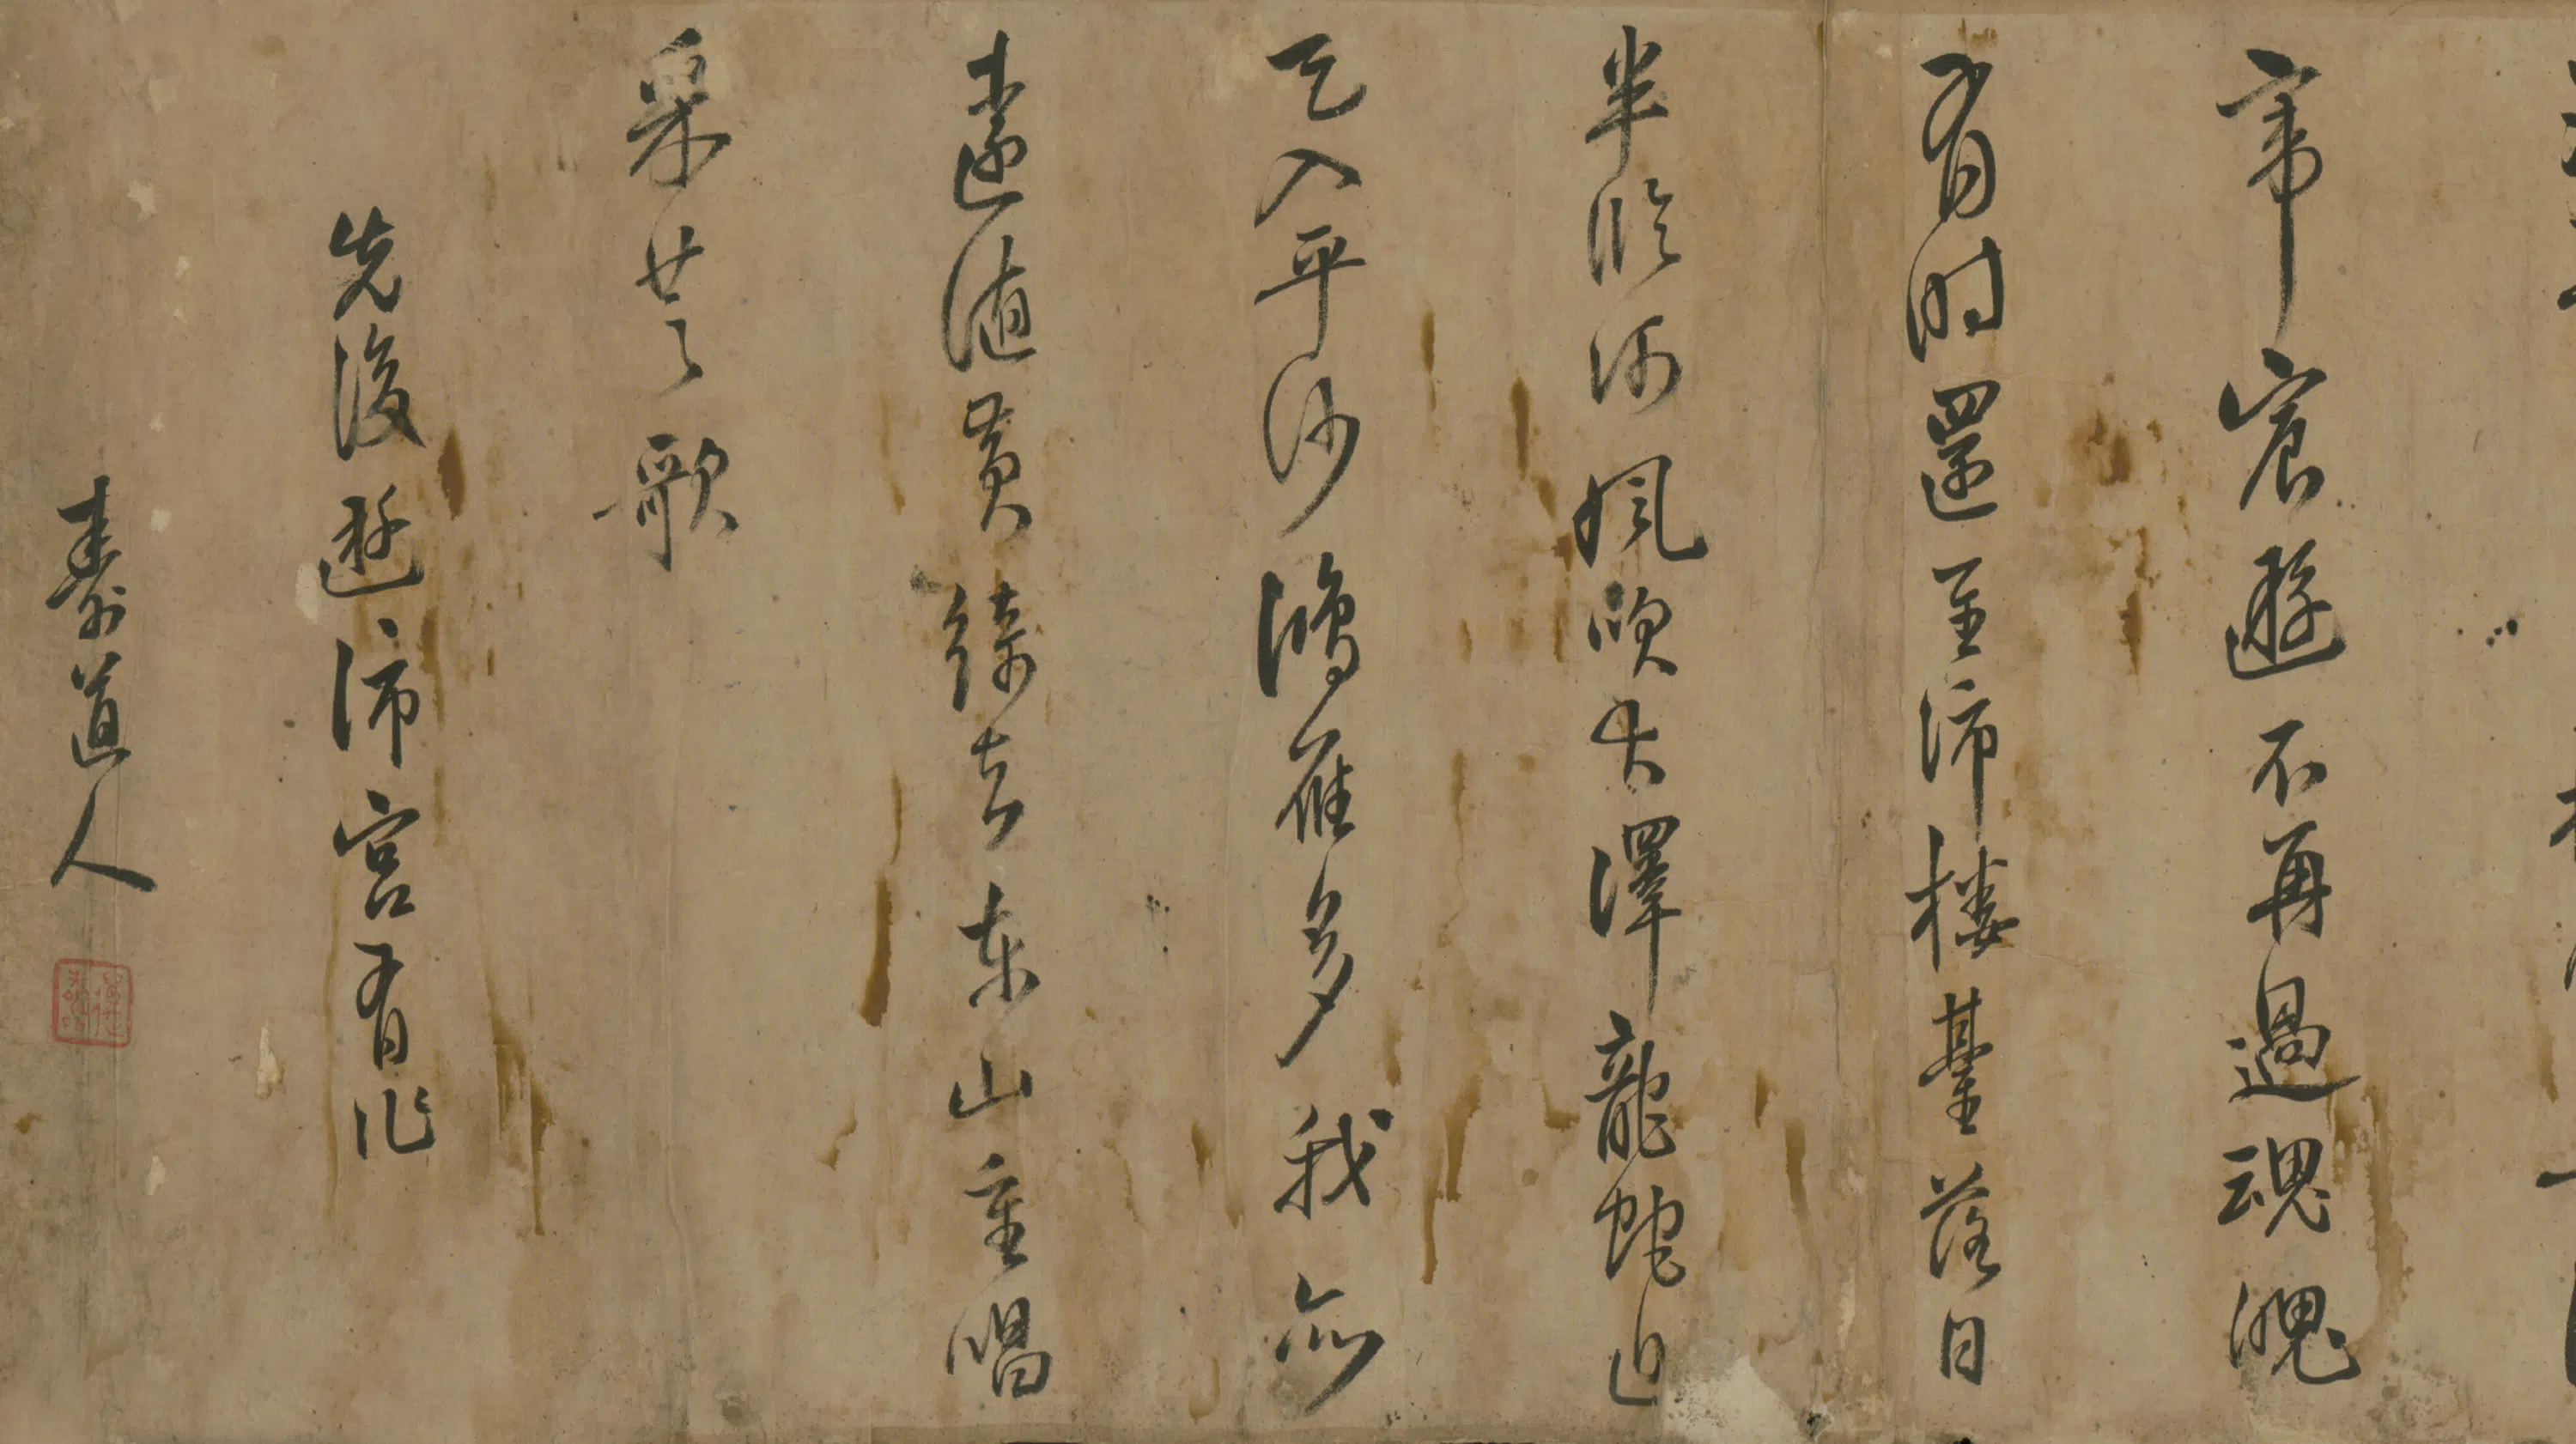 帝宸遊不再過魂魄
有时還至沛樓臺落日
半臨河風吹大澤龍蛇近
天入平沙鴻雁多我亦
遠值黄綺去東山重唱
采芝歌
先後遊沛宮有作
壽道人